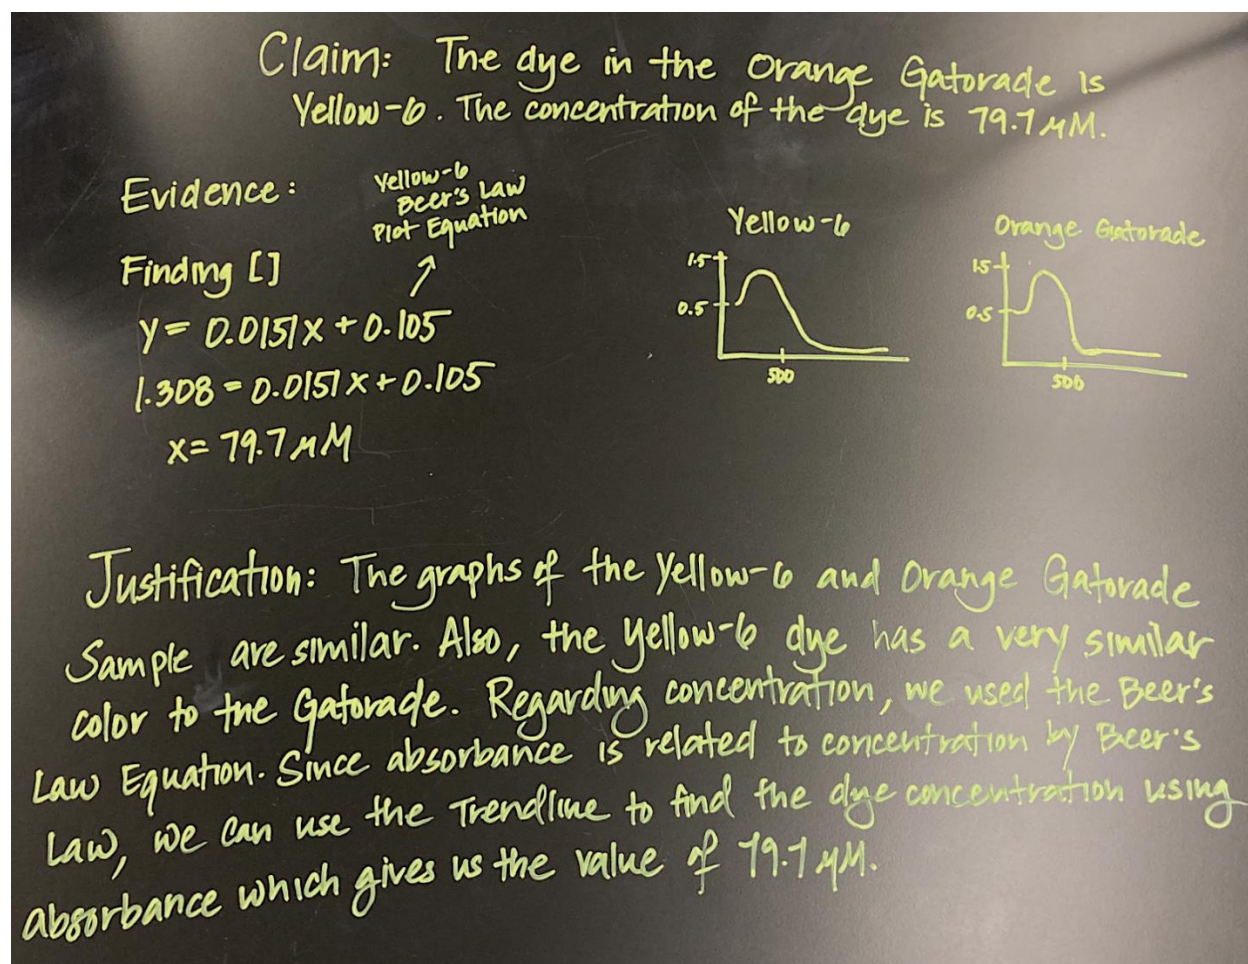 Claim: The dye in the Orange Gatorade is
Yellow-6. The concentration of the dye is 79.7 μM.
Evidence:
Yellow-6
Beer's Law
Plot Equation
Finding []
y = 0.0151x + 0.105
1.308 = 0.0151x + 0.105
x = 79.7 μM
Yellow-6
1.5
0.5
500
Orange Gatorade
1.5
0.5
500
Justification: The graphs of the Yellow-6 and Orange Gatorade
Sample are similar. Also, the Yellow-6 dye has a very similar
color to the Gatorade. Regarding concentration, we used the Beer's
Law Equation. Since absorbance is related to concentration by Beer's
Law, we can use the Trendline to find the dye concentration using
absorbance which gives us the value of 79.7 μM.